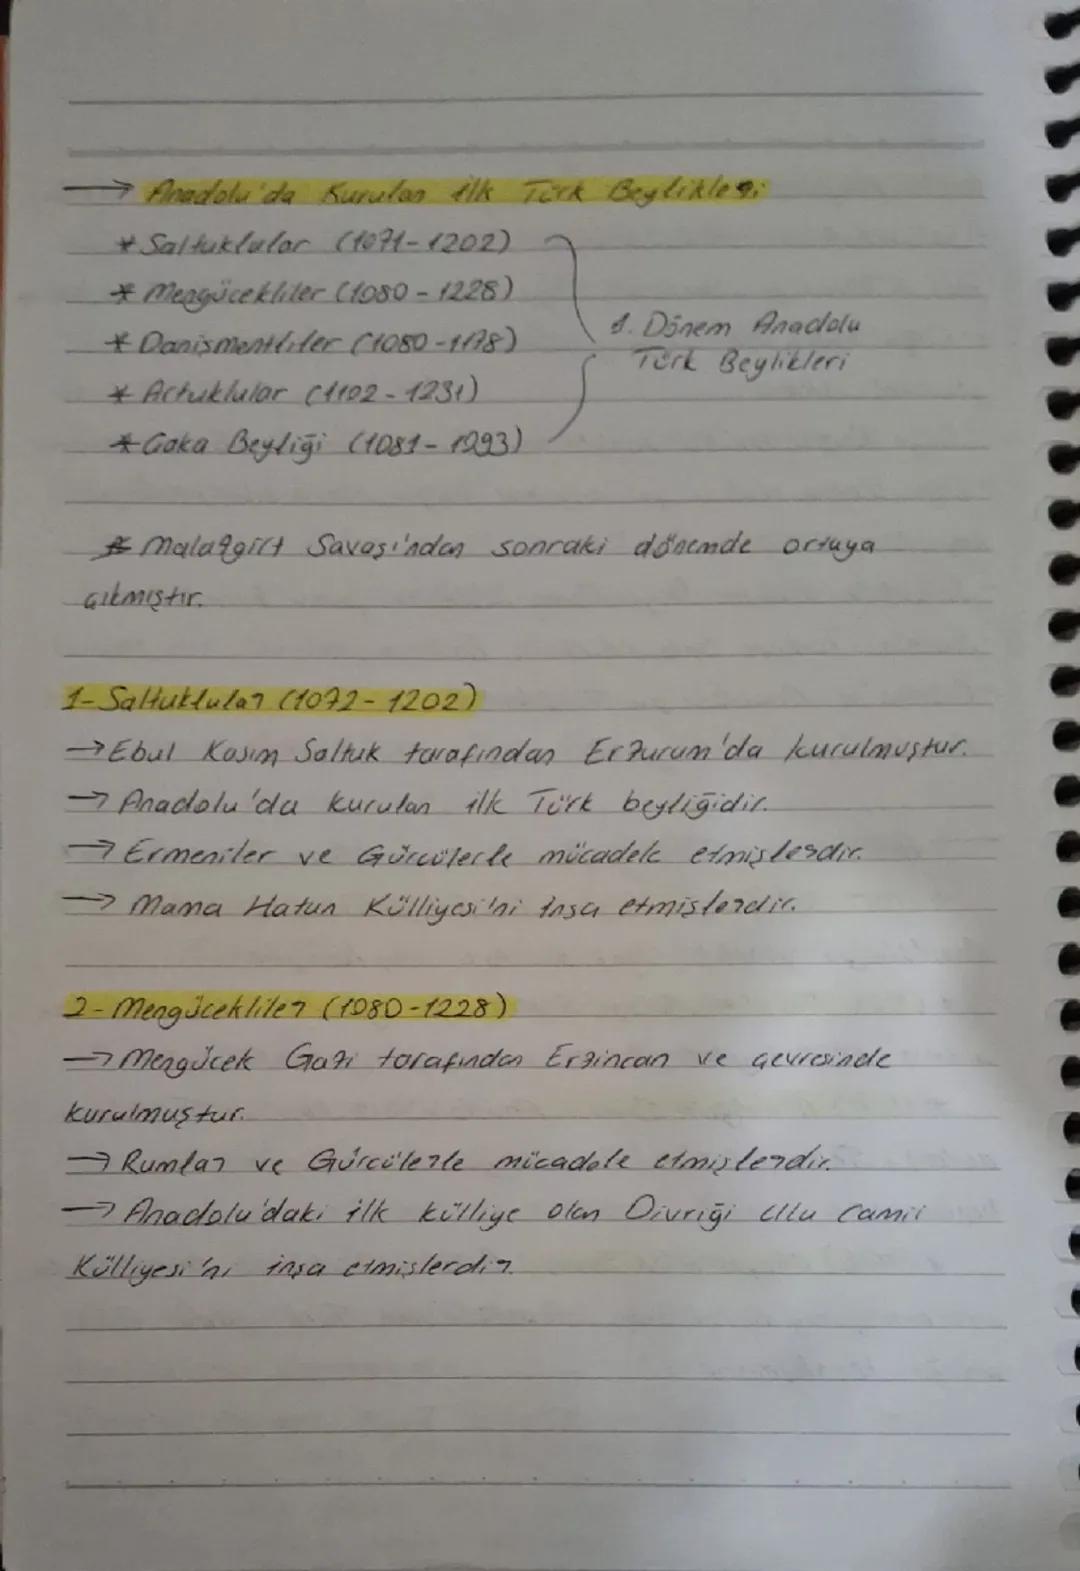 → Anadolu'da Kurulan ilk Türk Beylikleri
* Saltuklular (1071-1202)
* Mengücekliler (1080-1228)
* Danişmentliler (1080-1178)
* Artuklular (1102-1231)
* Çaka Beyliği (1081-1093)
1. Dönem Anadolu
Türk Beylikleri
* Malazgirt Savaşı'ndan sonraki dönemde ortaya
çıkmıştır.
1- Saltuklular (1072-1202)
→ Ebul Kasım Saltuk tarafından Erzurum'da kurulmuştur.
→ Anadolu'da kurulan ilk Türk beyliğidir.
→ Ermeniler ve Gürcülerle mücadele etmişlerdir.
→ Mama Hatun Külliyesi'ni inşa etmişlerdir.
2- Mengücekliler (1080-1228)
→ Mengücek Gazi tarafından Erzincan ve çevresinde
kurulmuştur.
→ Rumlar ve Gürcülerle mücadele etmişlerdir.
→ Anadolu'daki ilk külliye olan Divriği Ulu Camii
Külliyesi'ni inşa etmişlerdir.